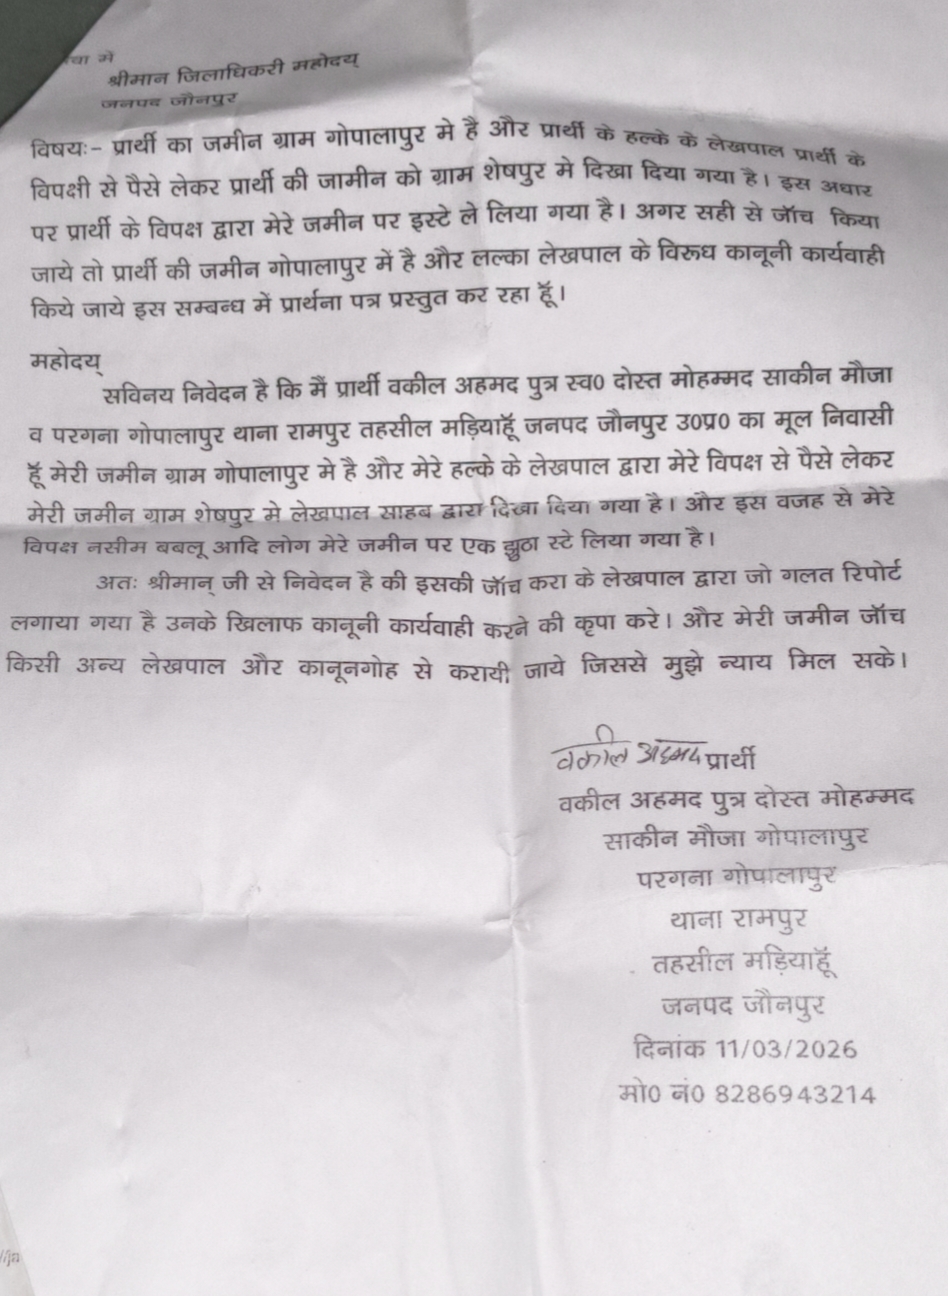 श्रीमान जिलाधिकरी महोदय्
जनपद जौनपुर
विषयः- प्रार्थी का जमीन ग्राम गोपालापुर मे है और प्रार्थी के हल्के के लेखपाल प्रार्थी के
विपक्षी से पैसे लेकर प्रार्थी की जामीन को ग्राम शेषपुर मे दिखा दिया गया है। इस अधार
पर प्रार्थी के विपक्ष द्वारा मेरे जमीन पर इस्टे ले लिया गया है। अगर सही से जॉच किया
जाये तो प्रार्थी की जमीन गोपालापुर में है और लल्का लेखपाल के विरूध कानूनी कार्यवाही
किये जाये इस सम्बन्ध में प्रार्थना पत्र प्रस्तुत कर रहा हूॅ।
महोदय्
सविनय निवेदन है कि मैं प्रार्थी वकील अहमद पुत्र स्व0 दोस्त मोहम्मद साकीन मौजा
व परगना गोपालापुर थाना रामपुर तहसील मड़ियाहूॅ जनपद जौनपुर उ0प्र0 का मूल निवासी
हूॅ मेरी जमीन ग्राम गोपालापुर मे है और मेरे हल्के के लेखपाल द्वारा मेरे विपक्ष से पैसे लेकर
मेरी जमीन ग्राम शेषपुर मे लेखपाल साहब द्वारा दिखा दिया गया है। और इस वजह से मेरे
विपक्ष नसीम बबलू आदि लोग मेरे जमीन पर एक झुठा स्टे लिया गया है।
अतः श्रीमान् जी से निवेदन है की इसकी जॉच करा के लेखपाल द्वारा जो गलत रिपोर्ट
लगाया गया है उनके खिलाफ कानूनी कार्यवाही करने की कृपा करे। और मेरी जमीन जॉच
किसी अन्य लेखपाल और कानूनगोह से करायी जाये जिससे मुझे न्याय मिल सके।
वकील अहमद प्रार्थी
वकील अहमद पुत्र दोस्त मोहम्मद
साकीन मौजा गोपालापुर
परगना गोपालापुर
थाना रामपुर
तहसील मड़ियाहूॅ
जनपद जौनपुर
दिनांक 11/03/2026
मो0 नं0 8286943214